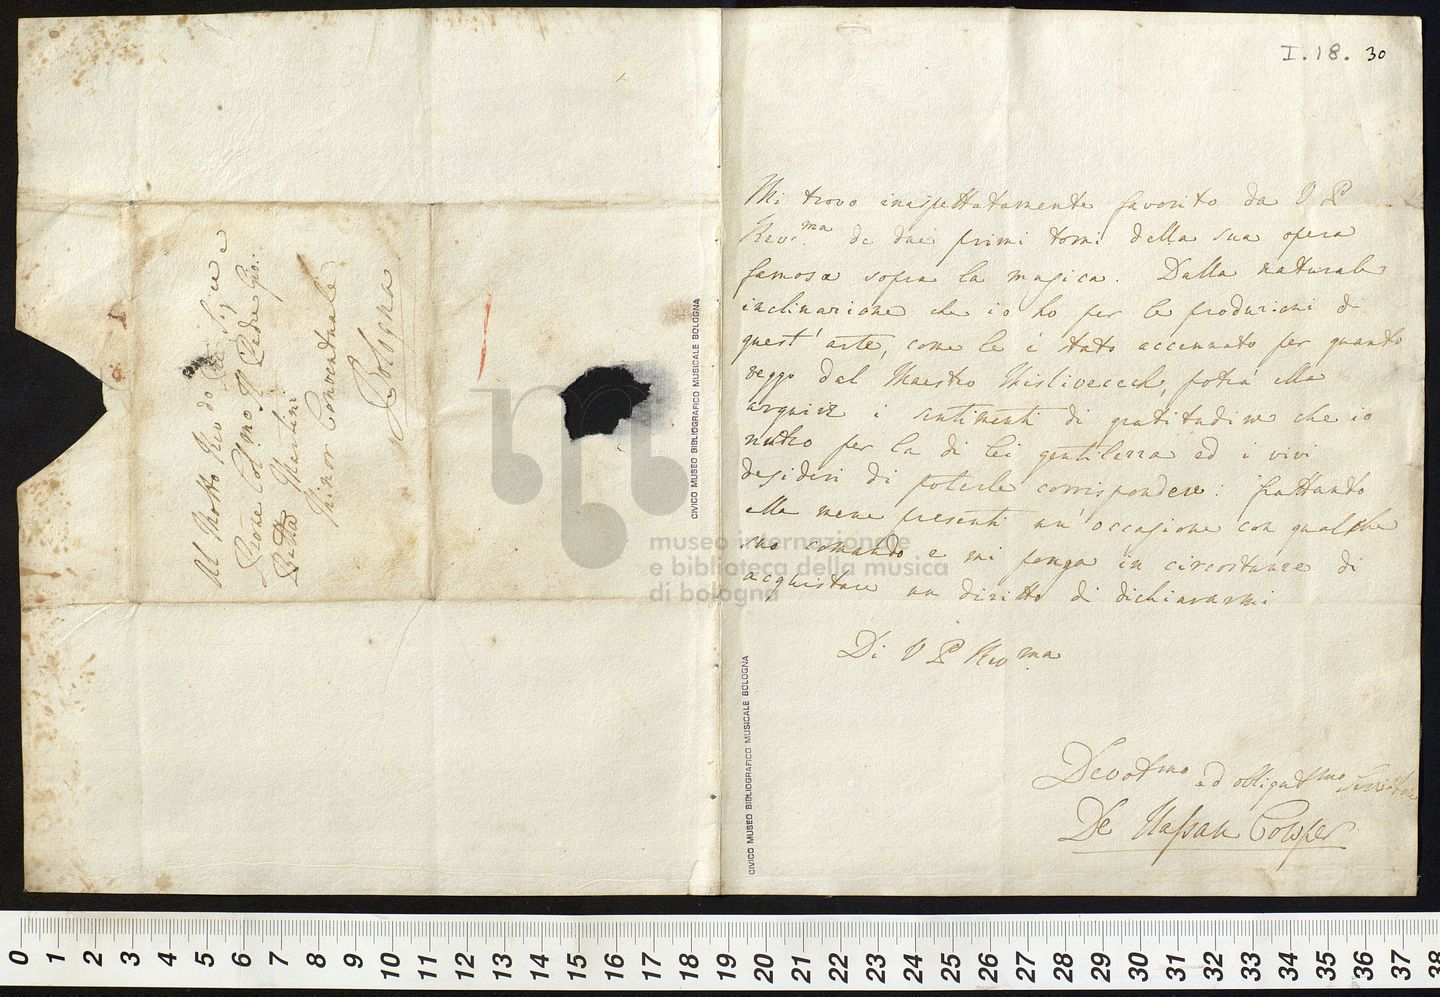 I.18. 30
Al Molto Revdo Pre Sigre e
Prone Colmo Il Padre Gio:
Batta Martini
Minor Conventuale
Bologna
CIVICO MUSEO BIBLIOGRAFICO MUSICALE BOLOGNA
museo internazionale
e biblioteca della musica
di bologna
Mi trovo inaspettatamente favorito da V P
Revma de due primi tomi della sua opera
famosa sopra la musica. Dalla naturale
inclinazione che io ho per le produzioni di
quest' arte, come le è stato accennato per quanto
veggo dal Maestro Mislivecech, potrà ella
arguire i sentimenti di gratitudine che io
nutro per la di lei gentilezza ed i vivi
desideri di poterle corrispondere: frattanto
ella mene presenti un' occasione con qualche
suo comando e mi ponga in circostanze di
acquistare un diritto di dichiararmi
Di V P Revma
Devotmo ed obligatmo Servitore
De Nassau Cowper
CIVICO MUSEO BIBLIOGRAFICO MUSICALE BOLOGNA
0 1 2 3 4 5 6 7 8 9 10 11 12 13 14 15 16 17 18 19 20 21 22 23 24 25 26 27 28 29 30 31 32 33 34 35 36 37 38